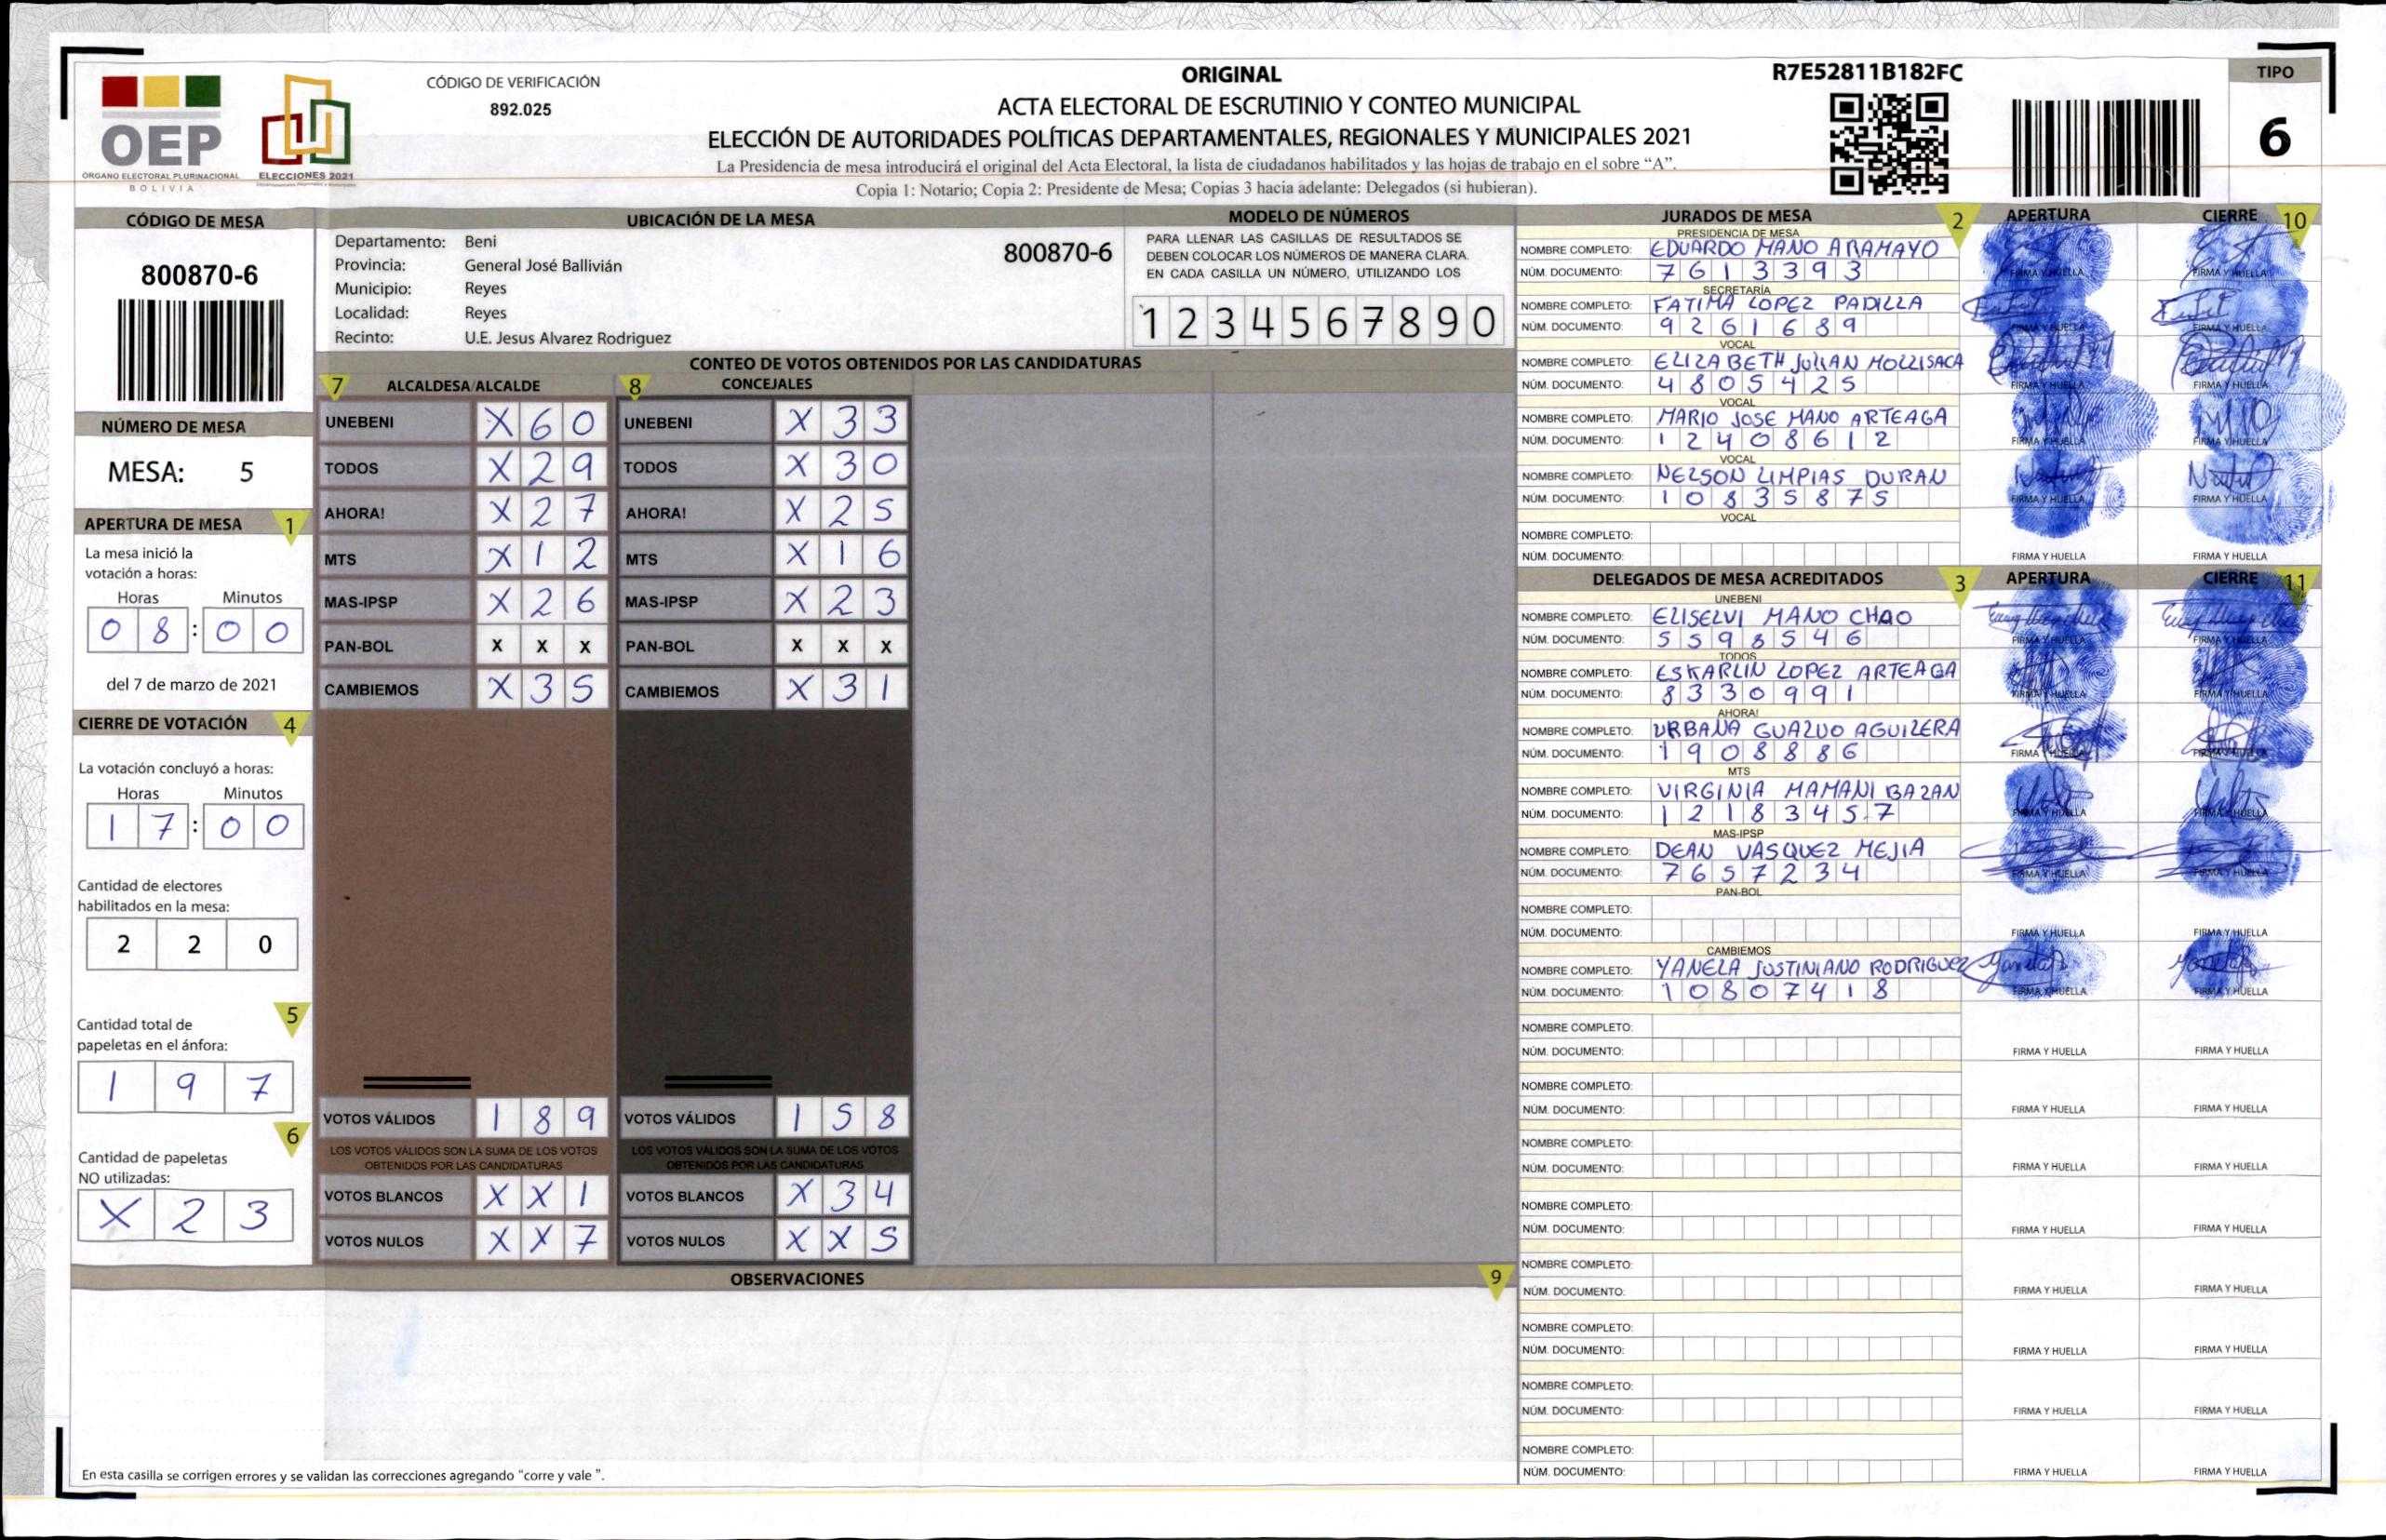 OEP
ÓRGANO ELECTORAL PLURINACIONAL
BOLIVIA
ELECCIONES 2021
CÓDIGO DE VERIFICACIÓN
892.025
ORIGINAL
ACTA ELECTORAL DE ESCRUTINIO Y CONTEO MUNICIPAL
ELECCIÓN DE AUTORIDADES POLÍTICAS DEPARTAMENTALES, REGIONALES Y MUNICIPALES 2021
La Presidencia de mesa introducirá el original del Acta Electoral, la lista de ciudadanos habilitados y las hojas de trabajo en el sobre “A”.
Copia 1: Notario; Copia 2: Presidente de Mesa; Copias 3 hacia adelante: Delegados (si hubieran).
R7E52811B182FC
TIPO
6
CÓDIGO DE MESA
800870-6
NÚMERO DE MESA
MESA: 5
APERTURA DE MESA 1
La mesa inició la
votación a horas:
Horas Minutos
0 8 : 0 0
del 7 de marzo de 2021
CIERRE DE VOTACIÓN 4
La votación concluyó a horas:
Horas Minutos
1 7 : 0 0
Cantidad de electores
habilitados en la mesa:
2 2 0
5
Cantidad total de
papeletas en el ánfora:
1 9 7
6
Cantidad de papeletas
NO utilizadas:
X 2 3
UBICACIÓN DE LA MESA
Departamento: Beni
800870-6
Provincia: General José Ballivián
Municipio: Reyes
Localidad: Reyes
Recinto: U.E. Jesus Alvarez Rodriguez
MODELO DE NÚMEROS
PARA LLENAR LAS CASILLAS DE RESULTADOS SE
DEBEN COLOCAR LOS NÚMEROS DE MANERA CLARA.
EN CADA CASILLA UN NÚMERO, UTILIZANDO LOS
1 2 3 4 5 6 7 8 9 0
CONTEO DE VOTOS OBTENIDOS POR LAS CANDIDATURAS
7 ALCALDESA/ALCALDE 8 CONCEJALES
UNEBENI X 6 0 UNEBENI X 3 3
TODOS X 2 9 TODOS X 3 0
AHORA! X 2 7 AHORA! X 2 5
MTS X 1 2 MTS X 1 6
MAS-IPSP X 2 6 MAS-IPSP X 2 3
PAN-BOL X X X PAN-BOL X X X
CAMBIEMOS X 3 5 CAMBIEMOS X 3 1
VOTOS VÁLIDOS 1 8 9 VOTOS VÁLIDOS 1 5 8
LOS VOTOS VÁLIDOS SON LA SUMA DE LOS VOTOS LOS VOTOS VÁLIDOS SON LA SUMA DE LOS VOTOS
OBTENIDOS POR LAS CANDIDATURAS OBTENIDOS POR LAS CANDIDATURAS
VOTOS BLANCOS X X 1 VOTOS BLANCOS X 3 4
VOTOS NULOS X X 7 VOTOS NULOS X X 5
OBSERVACIONES 9
En esta casilla se corrigen errores y se validan las correcciones agregando “corre y vale ”.
JURADOS DE MESA 2 APERTURA CIERRE 10
PRESIDENCIA DE MESA
NOMBRE COMPLETO: EDUARDO MANO ARAMAYO
NÚM. DOCUMENTO: 7 6 1 3 3 9 3 FIRMA Y HUELLA FIRMA Y HUELLA
SECRETARÍA
NOMBRE COMPLETO: FATIMA LOPEZ PADILLA
NÚM. DOCUMENTO: 9 2 6 1 6 8 9 FIRMA Y HUELLA FIRMA Y HUELLA
VOCAL
NOMBRE COMPLETO: ELIZABETH JULIAN MOLLISACA
NÚM. DOCUMENTO: 4 8 0 5 4 2 5 FIRMA Y HUELLA FIRMA Y HUELLA
VOCAL
NOMBRE COMPLETO: MARIO JOSE MANO ARTEAGA
NÚM. DOCUMENTO: 1 2 4 0 8 6 1 2 FIRMA Y HUELLA FIRMA Y HUELLA
VOCAL
NOMBRE COMPLETO: NELSON LIMPIAS DURAN
NÚM. DOCUMENTO: 1 0 8 3 5 8 7 5 FIRMA Y HUELLA FIRMA Y HUELLA
VOCAL
NOMBRE COMPLETO:
NÚM. DOCUMENTO: FIRMA Y HUELLA FIRMA Y HUELLA
DELEGADOS DE MESA ACREDITADOS 3 APERTURA CIERRE 11
UNEBENI
NOMBRE COMPLETO: ELISELVI MANO CHAO
NÚM. DOCUMENTO: 5 5 9 8 5 4 6 FIRMA Y HUELLA FIRMA Y HUELLA
TODOS
NOMBRE COMPLETO: ESKARLIN LOPEZ ARTEAGA
NÚM. DOCUMENTO: 8 3 3 0 9 9 1 FIRMA Y HUELLA FIRMA Y HUELLA
AHORA!
NOMBRE COMPLETO: URBANA GUAZUO AGUILERA
NÚM. DOCUMENTO: 1 9 0 8 8 8 6 FIRMA Y HUELLA FIRMA Y HUELLA
MTS
NOMBRE COMPLETO: VIRGINIA MAMANI BAZAN
NÚM. DOCUMENTO: 1 2 1 8 3 4 5 7 FIRMA Y HUELLA FIRMA Y HUELLA
MAS-IPSP
NOMBRE COMPLETO: DEAN VASQUEZ MEJIA
NÚM. DOCUMENTO: 7 6 5 7 2 3 4 FIRMA Y HUELLA FIRMA Y HUELLA
PAN-BOL
NOMBRE COMPLETO:
NÚM. DOCUMENTO: FIRMA Y HUELLA FIRMA Y HUELLA
CAMBIEMOS
NOMBRE COMPLETO: YANELA JUSTINIANO RODRIGUEZ
NÚM. DOCUMENTO: 1 0 8 0 7 4 1 8 FIRMA Y HUELLA FIRMA Y HUELLA
NOMBRE COMPLETO:
NÚM. DOCUMENTO: FIRMA Y HUELLA FIRMA Y HUELLA
NOMBRE COMPLETO:
NÚM. DOCUMENTO: FIRMA Y HUELLA FIRMA Y HUELLA
NOMBRE COMPLETO:
NÚM. DOCUMENTO: FIRMA Y HUELLA FIRMA Y HUELLA
NOMBRE COMPLETO:
NÚM. DOCUMENTO: FIRMA Y HUELLA FIRMA Y HUELLA
NOMBRE COMPLETO:
NÚM. DOCUMENTO: FIRMA Y HUELLA FIRMA Y HUELLA
NOMBRE COMPLETO:
NÚM. DOCUMENTO: FIRMA Y HUELLA FIRMA Y HUELLA
NOMBRE COMPLETO:
NÚM. DOCUMENTO: FIRMA Y HUELLA FIRMA Y HUELLA
NOMBRE COMPLETO:
NÚM. DOCUMENTO: FIRMA Y HUELLA FIRMA Y HUELLA